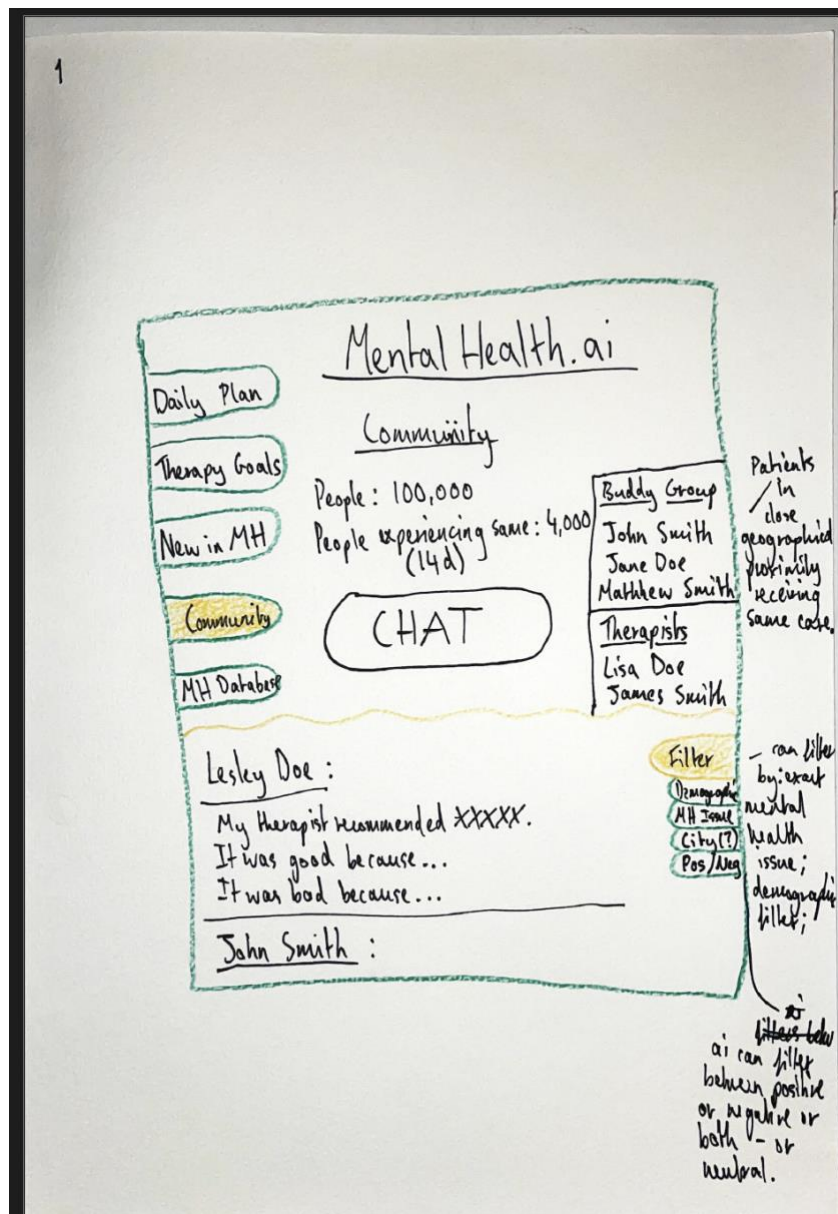 1
Mental Health.ai
Daily Plan
Therapy Goals
New in MH
Community
MH Database
Community
People: 100,000
People experiencing same: 4,000
(14d)
CHAT
Buddy Group
John Smith
Jane Doe
Matthew Smith
Therapists
Lisa Doe
James Smith
Patients
in
close
geographical
proximity
receiving
same care.
Lesley Doe :
My therapist recommended XXXXX.
It was good because...
It was bad because...
John Smith :
Filter
Demographic
MH Issue
City(?)
Pos/Neg
- can filter
by: exact
mental
health
issue;
demographic
filter;
ai can filter
between positive
or negative or
both - or
neutral.